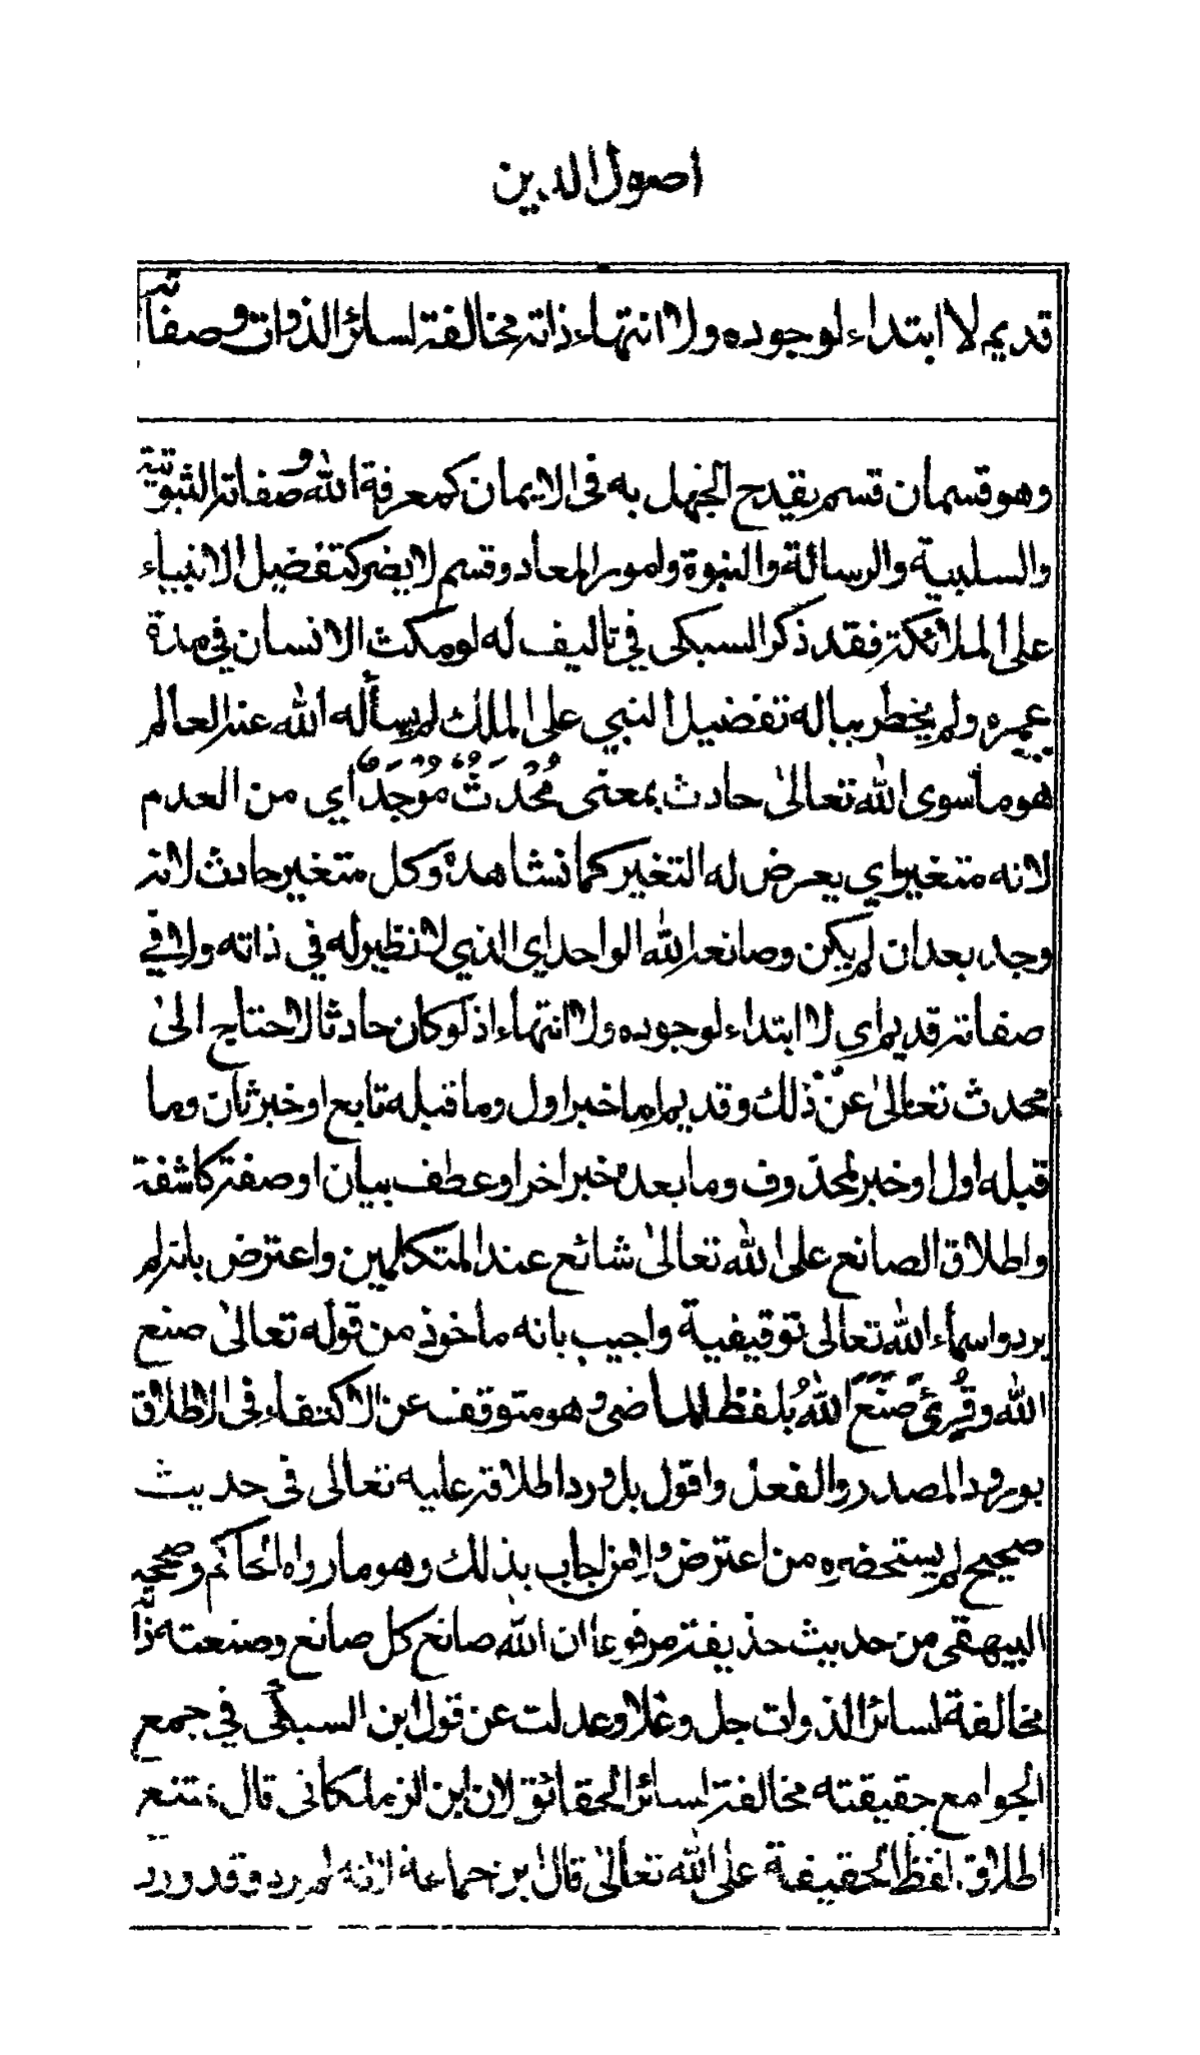 اصول الدين
قديم لا ابتداء لوجوده ولا انتهاء ذاته مخالفة لسائر الذوات وصفاته
وهو قسمان قسم يقدح الجهل به في الايمان كمعرفة الله وصفاته الثبوتية
والسلبية والرسالة والنبوة وامور المعاد وقسم لا يضر كتفضيل الانبياء
على الملائكة فقد ذكر السبكى في تاليف له لو مكث الانسان في مدة
عمره ولم يخطر بباله تفضيل النبي على الملك لم يسأله الله عنه العالم
هو ما سوى الله تعالىٰ حادث بمعنى مُحْدَثٌ مُوْجَدٌ اي من العدم
لانه متغير اي يعرض له التغير كما نشاهده وكل متغير حادث لانه
وجد بعد ان لم يكن وصانعه الله الواحد اي الذي لا نظير له في ذاته ولا في
صفاته قديم اى لا ابتداء لوجوده ولا انتهاء اذ لو كان حادثا لاحتاج الىٰ
محدث تعالىٰ عن ذلك وقديم اما خبر اول وما قبله تابع او خبر ثان وما
قبله اول او خبر لمحذوف وما بعده خبر اخر او عطف بيان او صفة كاشفة
واطلاق الصانع على الله تعالىٰ شائع عند المتكلمين واعترض بانه لم
يرد واسماء الله تعالى توقيفية واجيب بانه مأخوذ من قوله تعالىٰ صنع
الله وقُرِئَ صَنَعَ اللهُ بلفظ الماضى وهو متوقف عن الاكتفاء في الاطلاق
بورود المصدر والفعل واقول بل ورد اطلاقه عليه تعالى فى حديث
صحيح لم يستحضره من اعترض ولا من اجاب بذلك وهو ما رواه الحاكم وصححه
البيهقى من حديث حذيفة مرفوعا ان الله صانع كل صانع وصنعته ذاته
مخالفة لسائر الذوات جل وعلا وعدلت عن قول ابن السبكى في جمع
الجوامع حقيقته مخالفة لسائر الحقائق لان ابن الزملكانى قال يمتنع
اطلاق لفظ الحقيقة على الله تعالىٰ قال ابن جماعة لانه لم يرد وقد ورد